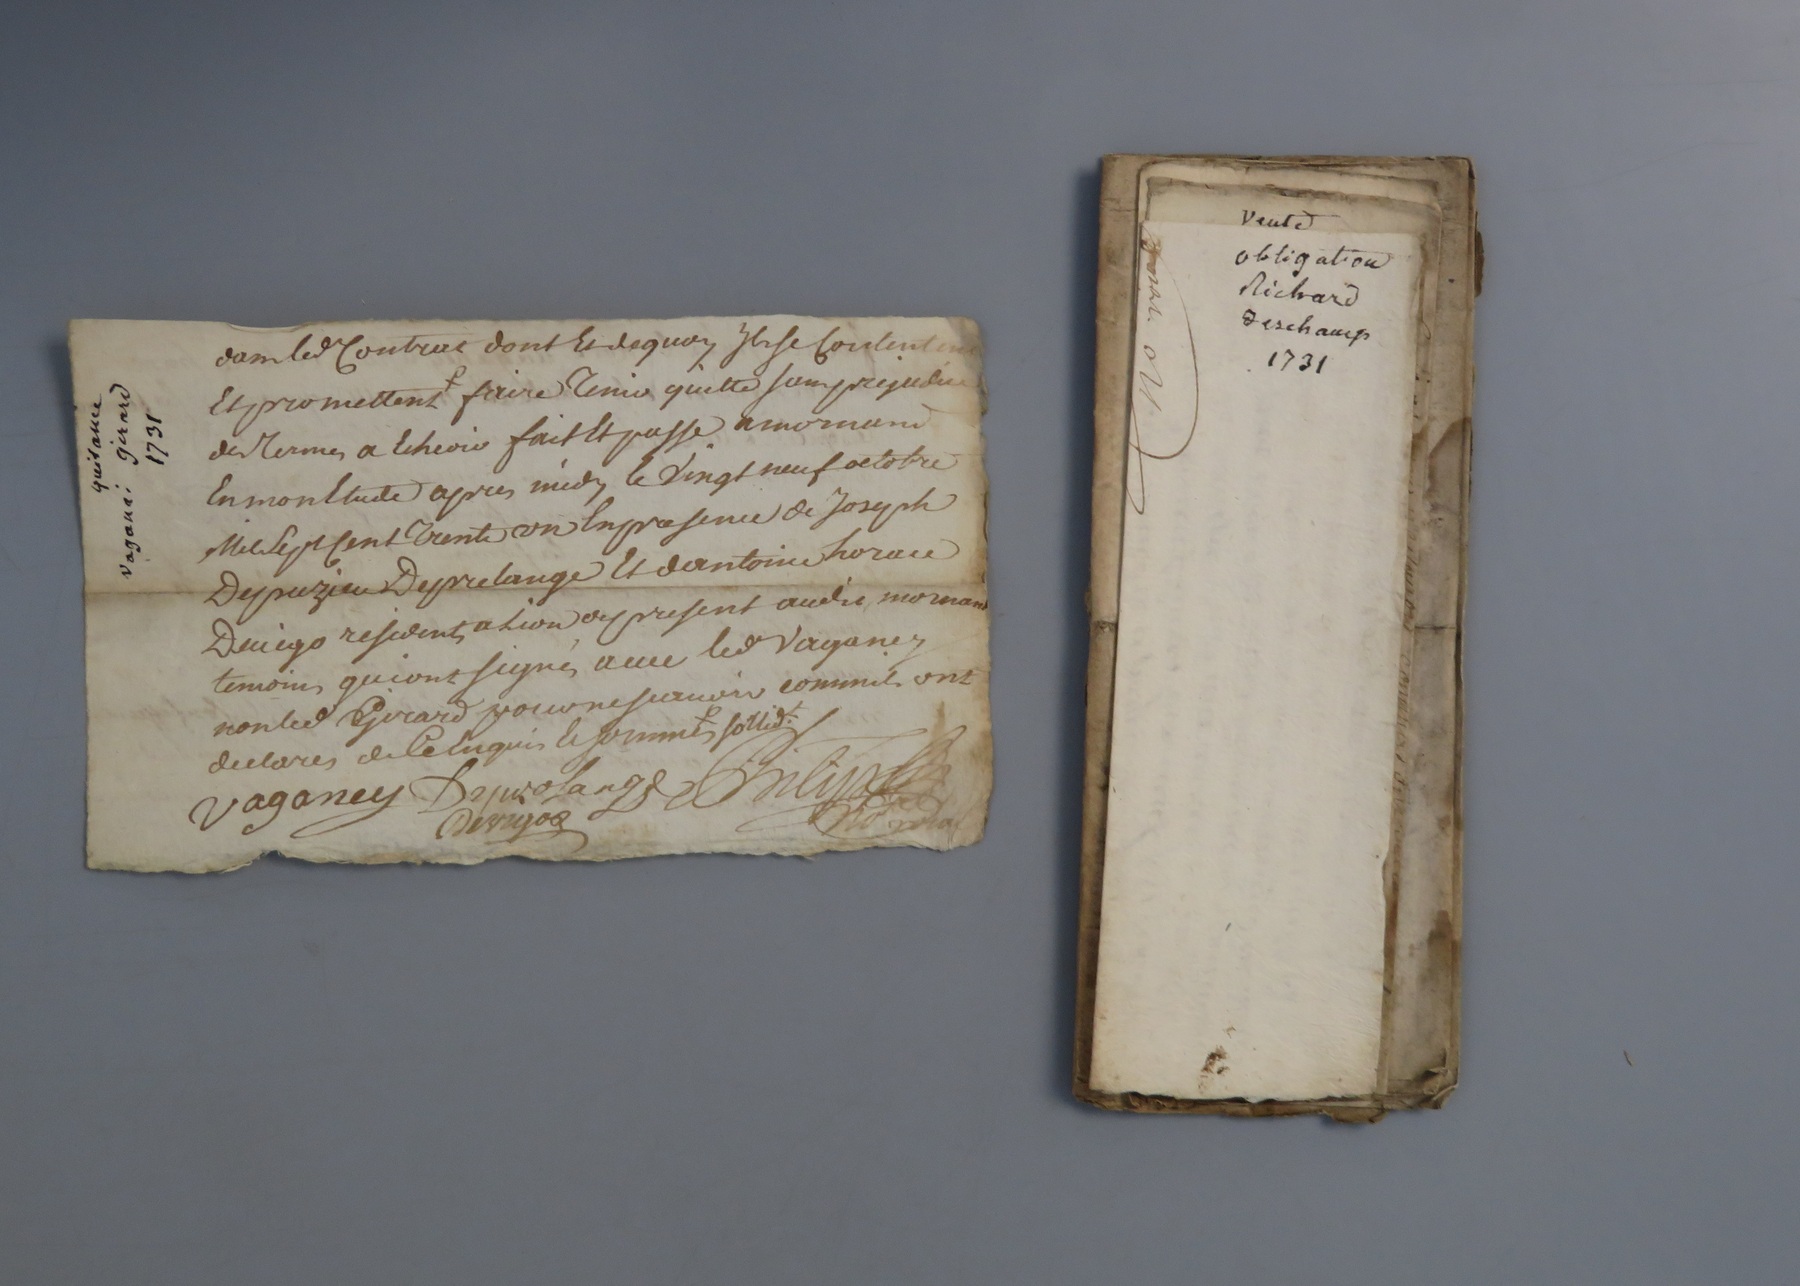 quitance
vagani: girard
1731
dans led Contrat dont Et dequoy Ils se Contentent
Et promettent faire Tenir quitte sans prejudice
des Termes a Echeoir fait Et passé a mornant
En mon Etude apres midy le Vingt neuf octobre
Mil Sept Cent Trente un En presence de Joseph
Depuzieu Deprelange Et d'antoine horace
Deuigo residents a Lion de present audit mornant
temoins qui ont signés auec led Vaganey
non led Girard pour ne sçauoir comme ils ont
declarés de Ce Enquis Et sommés sollidt.
Vaganey Deprelange
Devigo
Vente
obligation
Richard
Deschamps
1731